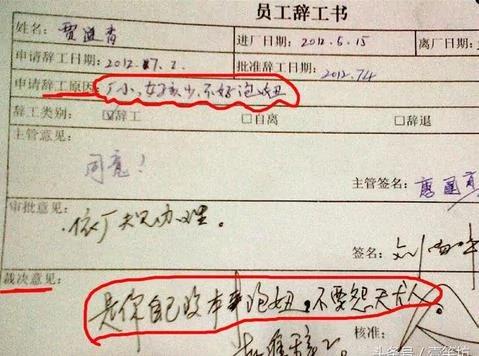 员工辞工书
姓名: 贾进春 进厂日期: 2012.5.15 离厂日期:
申请辞工日期: 2012. 7. 2. 批准辞工日期: 2012.7.4
申请辞工原因: 厂小,女孩少,不好泡妞
辞工类别: ☑辞工 □自离 □辞退
主管意见:
同意!
主管签名:
审批意见:
依厂规办理。
签名:
裁决意见:
是你自己没本事泡妞,不要怨天尤人
核准: